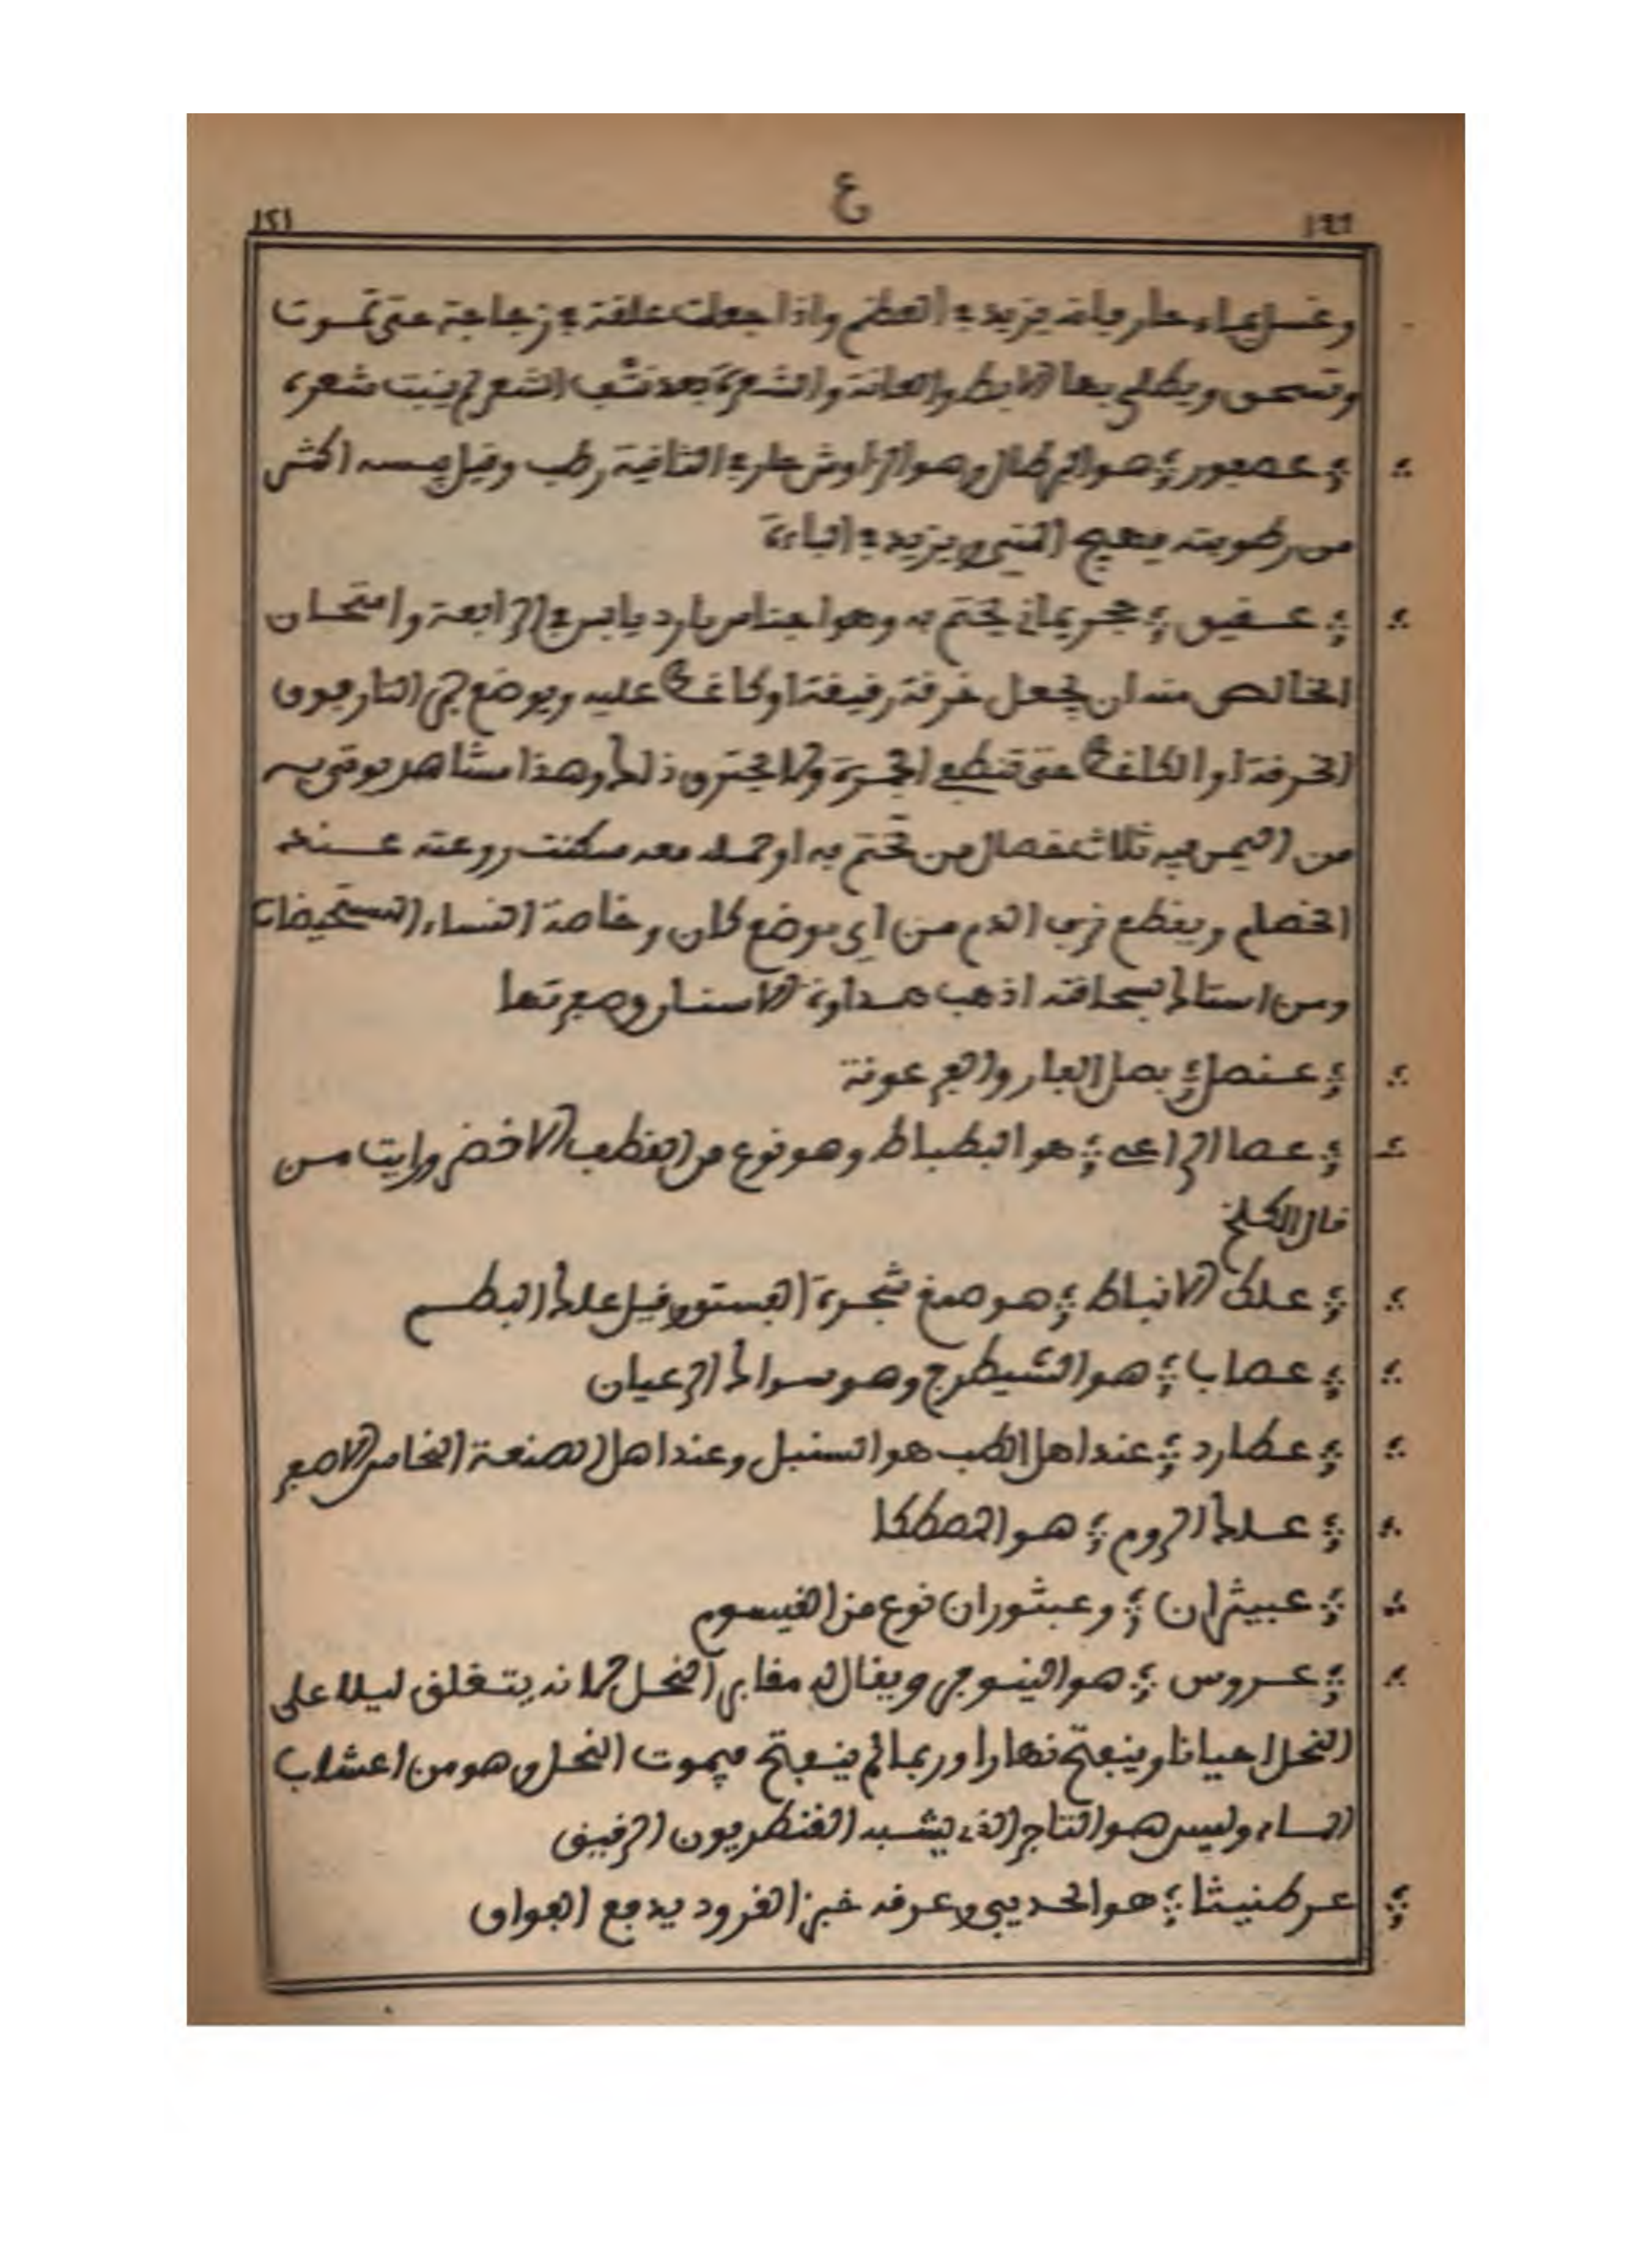 ع
وغسل بماء حار فإنه يزيد في العظم وإذا جعلت علقة في زجاجة حتى تموت
وتسحق ويطلى بها الابط والعانة والشعرة بعد نتف الشعر لم ينبت شعره
عصفور هو البرطال وهو الزاوش حار في الثانية رطب وقيل يبسه اكثر
من رطوبته يهيج المني ويزيد في الباءة
عقيق حجر يماني يختم به وهو اجناس بارد يابس في الرابعة وامتحان
الخالص منه ان يجعل خرقة رقيقة او كاغد عليه ويوضع جمر النار فوق
الخرقة او الكاغد حتى تنطفي الجمرة ولا يحترق ذلك وهذا مشاهد يوتى به
من اليمن فيه ثلاث خصال من تختم به او حمله معه سكنت روعته عند
الخصام ويقطع نزف الدم من اي موضع كان وخاصة النساء المستحيضات
ومن استاك بسحاقته اذهب صداوة الاسنان وصفرتها
عنصل بصل الفار والفرعونة
عصا الراعي هو البطباط وهو نوع من القطف الاخضر ورايت من
قال الكلخ
علك الانباط هو صمغ شجرة الفستق وقيل علك البطم
عصاب هو الشيطرج وهو سواك الرعيان
عطارد عند اهل الطب هو السنبل وعند اهل الصنعة النحاس الاصفر
علك الروم هو المصطكا
عبيثران وعبثوران نوع من القيسوم
عروس هو النينوفر ويقال له مقابر النحل لانه يتغلق ليلا على
النحل احيانا وينفتح نهارا وربما لم ينفتح فيموت النحل وهو من اعشاب
الماء وليس هو التاجر الذي يشبه القنطريون الرقيق
عرطنيثا هو الحديبي وعرفه خبز القرود يدفع الفواق